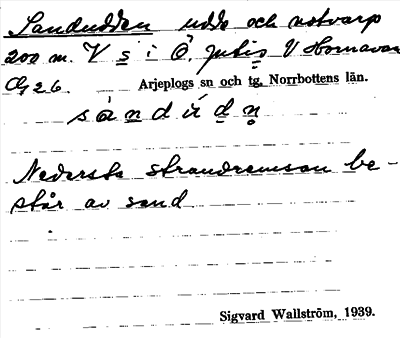 Sandudden udde och notvarp
200 m. V s i Ö. Jutis V Hornavan
26. Arjeplogs sn och tg. Norrbottens län.
sàndúdn
Nedersta strandremsan be-
står av sand
Sigvard Wallström, 1939.